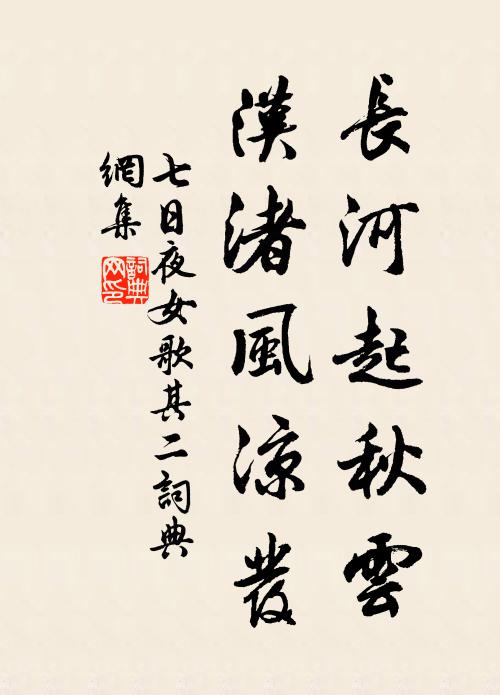 長河起秋雲
漢渚風涼發
七日夜女歌其二詞典
網集
詞典網印